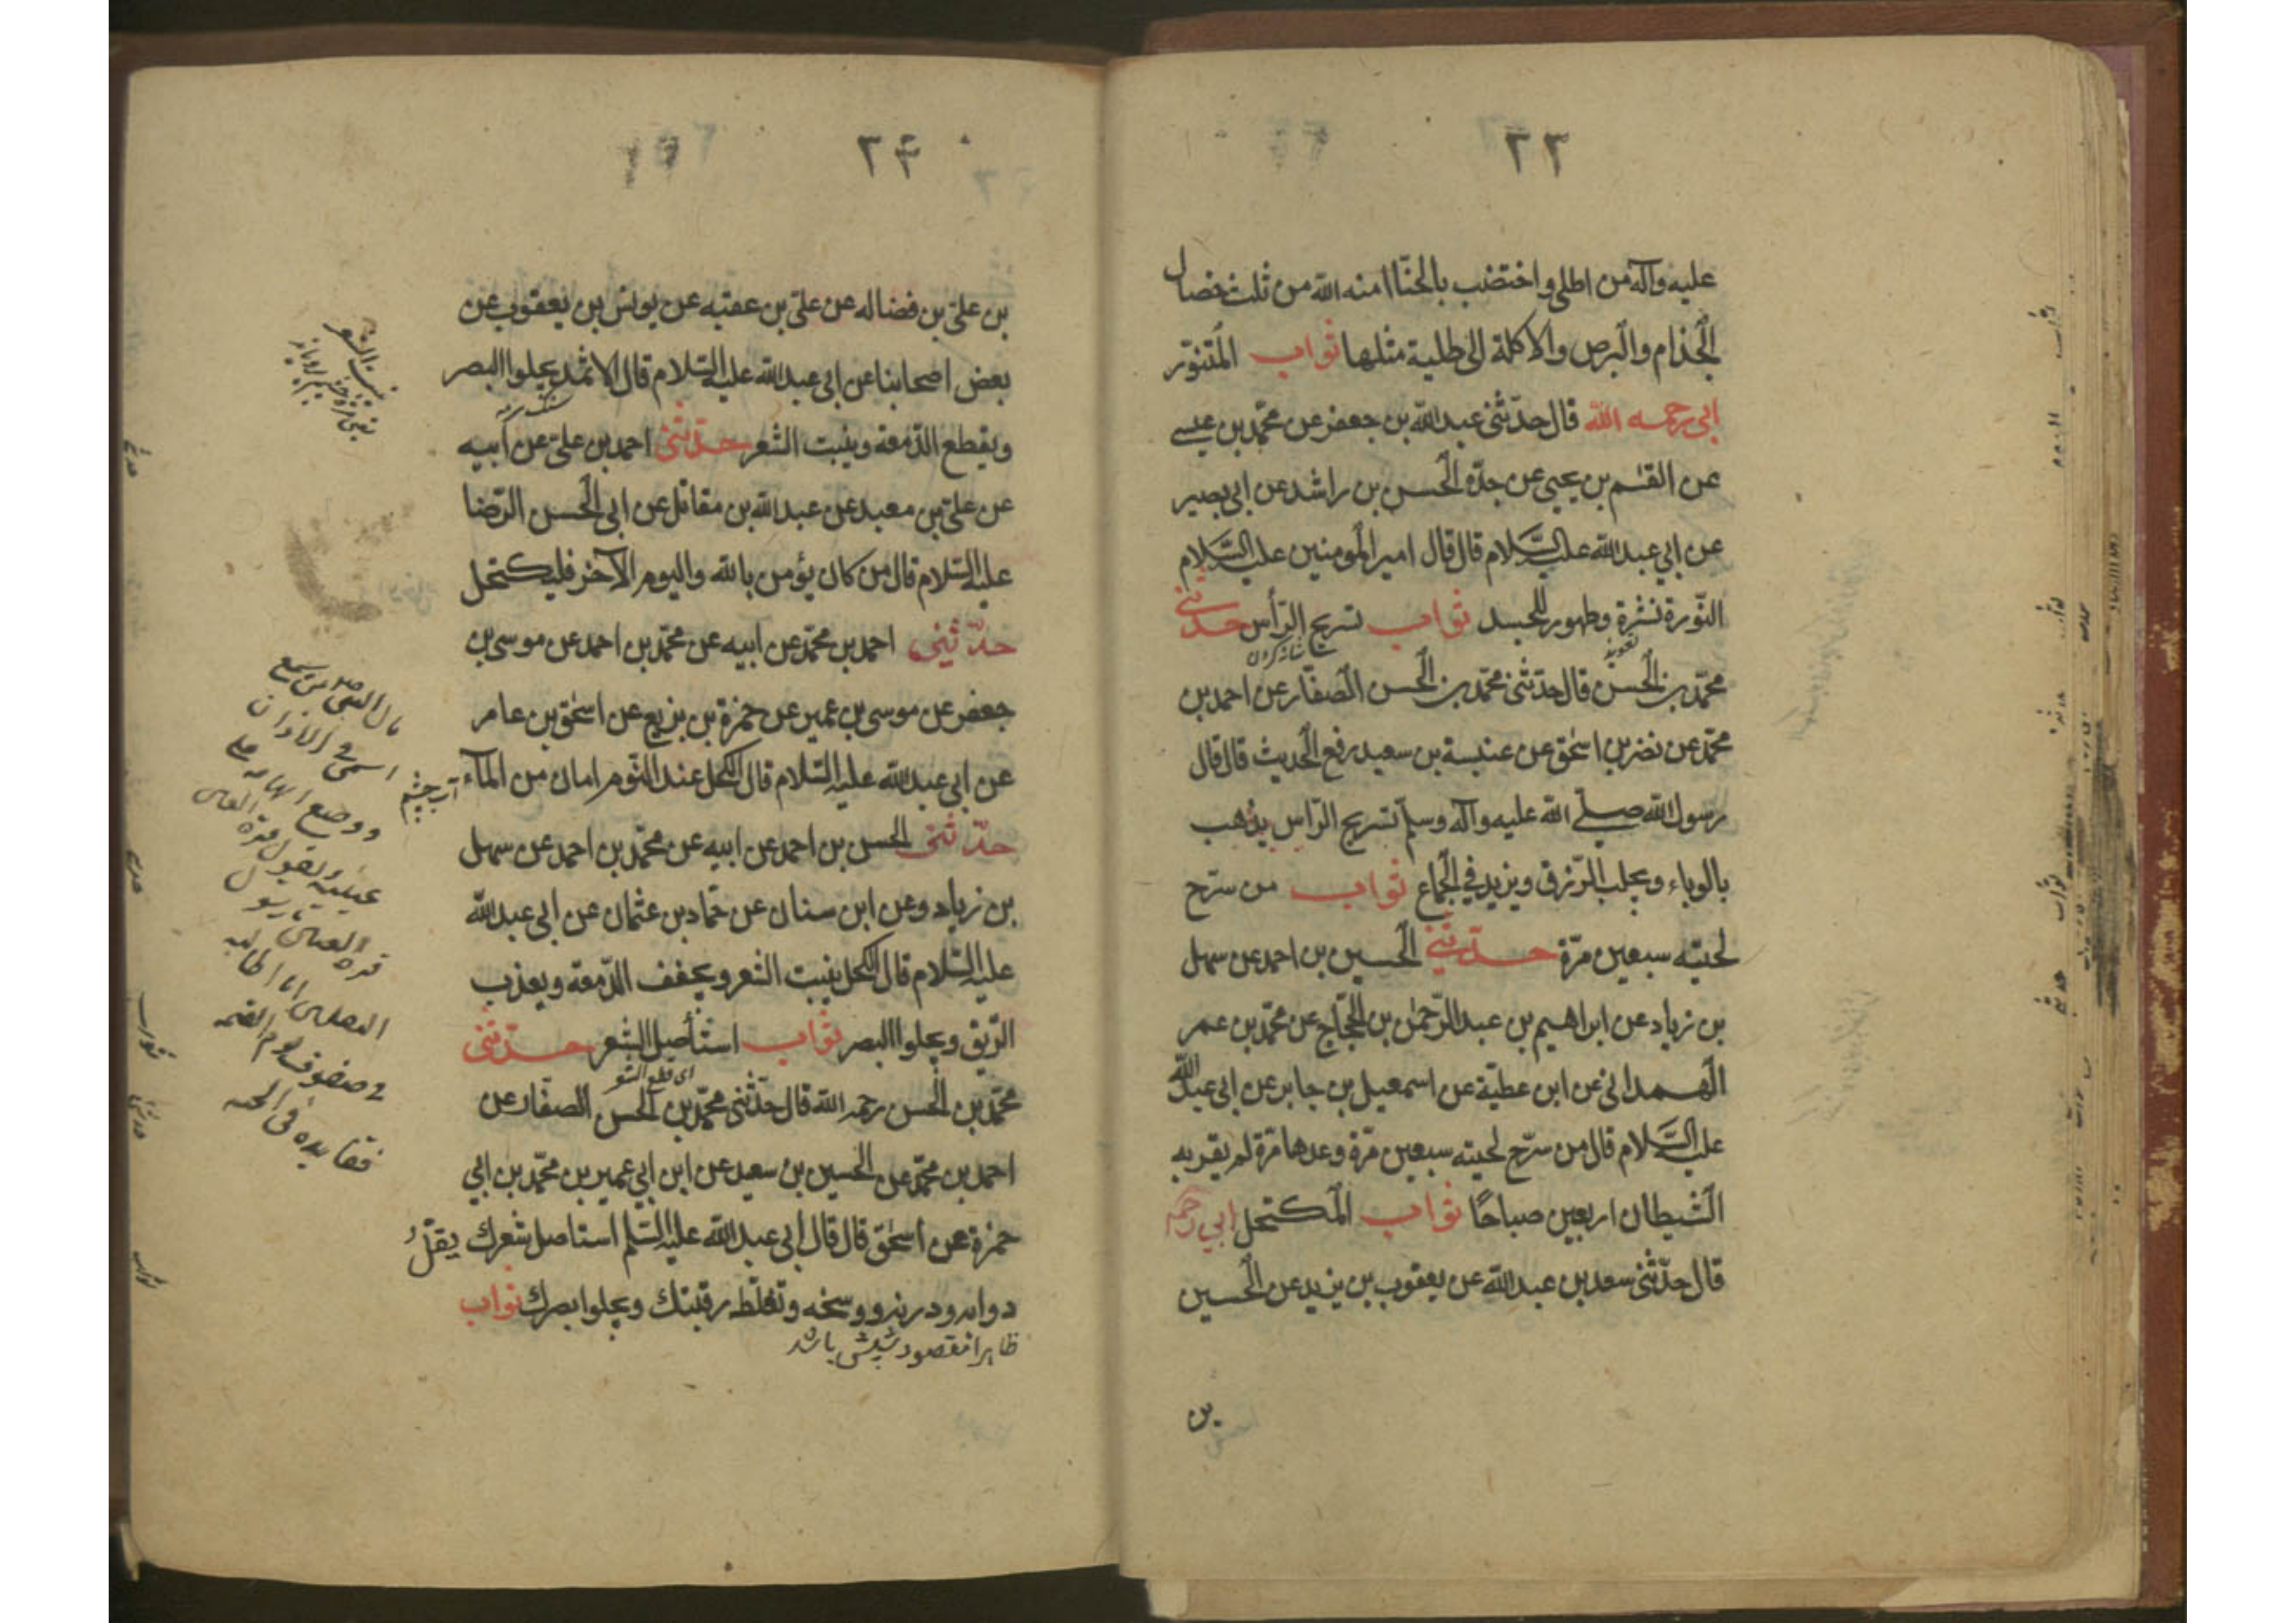 ٢٣
عليه وآله من اطلى واختضب بالحنّا امنه الله من ثلث خصال
الجذام والبرص والاكلة الى طلية مثلها ثواب المتنوّر
ابى رحمه الله قال حدّثنى عبد الله بن جعفر عن محمّد بن عيسى
عن القسم بن يحيى عن جدّه الحسن بن راشد عن ابى بصير
عن ابي عبد الله عليه السّلام قال قال امير المومنين عليه السّلام
النّورة نشرة وطهور للجسد ثواب تسريح الرّأس حدّثنى
تعويذ
شانه كردن
محمّد بن الحسن قال حدّثنى محمّد بن الحسن الصفّار عن احمد بن
محمّد عن نضر بن اسحق عن عنبسة بن سعيد رفع الحديث قال قال
رسول الله صلّى الله عليه وآله وسلم تسريح الرّاس يذهب
بالوباء ويجلب الرّزق ويزيد في الجماع ثواب من سرّح
لحيته سبعين مرّة حدّثنى الحسين بن احمد عن سهل
بن زياد عن ابراهيم بن عبد الرّحمن بن الحجّاج عن محمّد بن عمر
الهمدانى عن ابن عطيّة عن اسمعيل بن جابر عن ابى عبد الله
عليه السّلام قال من سرّح لحيته سبعين مرّة وعدها مرّة لم يقربه
الشيطان اربعين صباحًا ثواب المكتحل ابي رحمه
قال حدّثنى سعد بن عبد الله عن يعقوب بن يزيد عن الحسين
بن
٢۴
بن علىّ بن فضاله عن علىّ بن عقبه عن يونس بن يعقوب عن
بعض اصحابنا عن ابى عبد الله عليه السّلام قال الاثمد يجلوا البصر
سنك سرمه
ويقطع الدّمعة وينبت الشعر حدّثنى احمد بن علىّ عن ابيه
عن علىّ بن معبد عن عبد الله بن مقاتل عن ابى الحسن الرّضا
عليه السّلام قال من كان يؤمن بالله واليوم الآخر فليكتحل
حدّثنى احمد بن محمّد عن ابيه عن محمّد بن احمد عن موسى بن
جعفر عن موسى بن عمير عن حمزة بن بزيع عن اسحق بن عامر
عن ابى عبد الله عليه السّلام قال الكحل عند النّوم امان من المآء
آب چشم
حدّثنى الحسن بن احمد عن ابيه عن محمّد بن احمد عن سهل
بن زياد وعن ابن سنان عن حمّاد بن عثمان عن ابى عبد الله
عليه السّلام قال الكحل ينبت الشعر ويجفف الدّمعة ويعذب
الرّيق ويجلوا البصر ثواب استأصل الشعر حدّثنى
اى قطع الشعر
محمّد بن الحسن رحمه الله قال حدّثنى محمّد بن الحسن الصفّار عن
احمد بن محمّد عن الحسين بن سعيد عن ابن ابي عمير بن محمّد بن ابي
حمزة عن اسحق قال قال ابى عبد الله عليه السّلم استاصل شعرك يقلّ
دوابه ودرنه ووسخه وتغلّظ رقبتك ويجلوا بصرك ثواب
ظاهرا مقصود شپش باشد
ينبت الشعر
من سمع
اسمى فى الاذان
ووضع ابهاميه على
عينيه
فى صفوف
الى الجنه